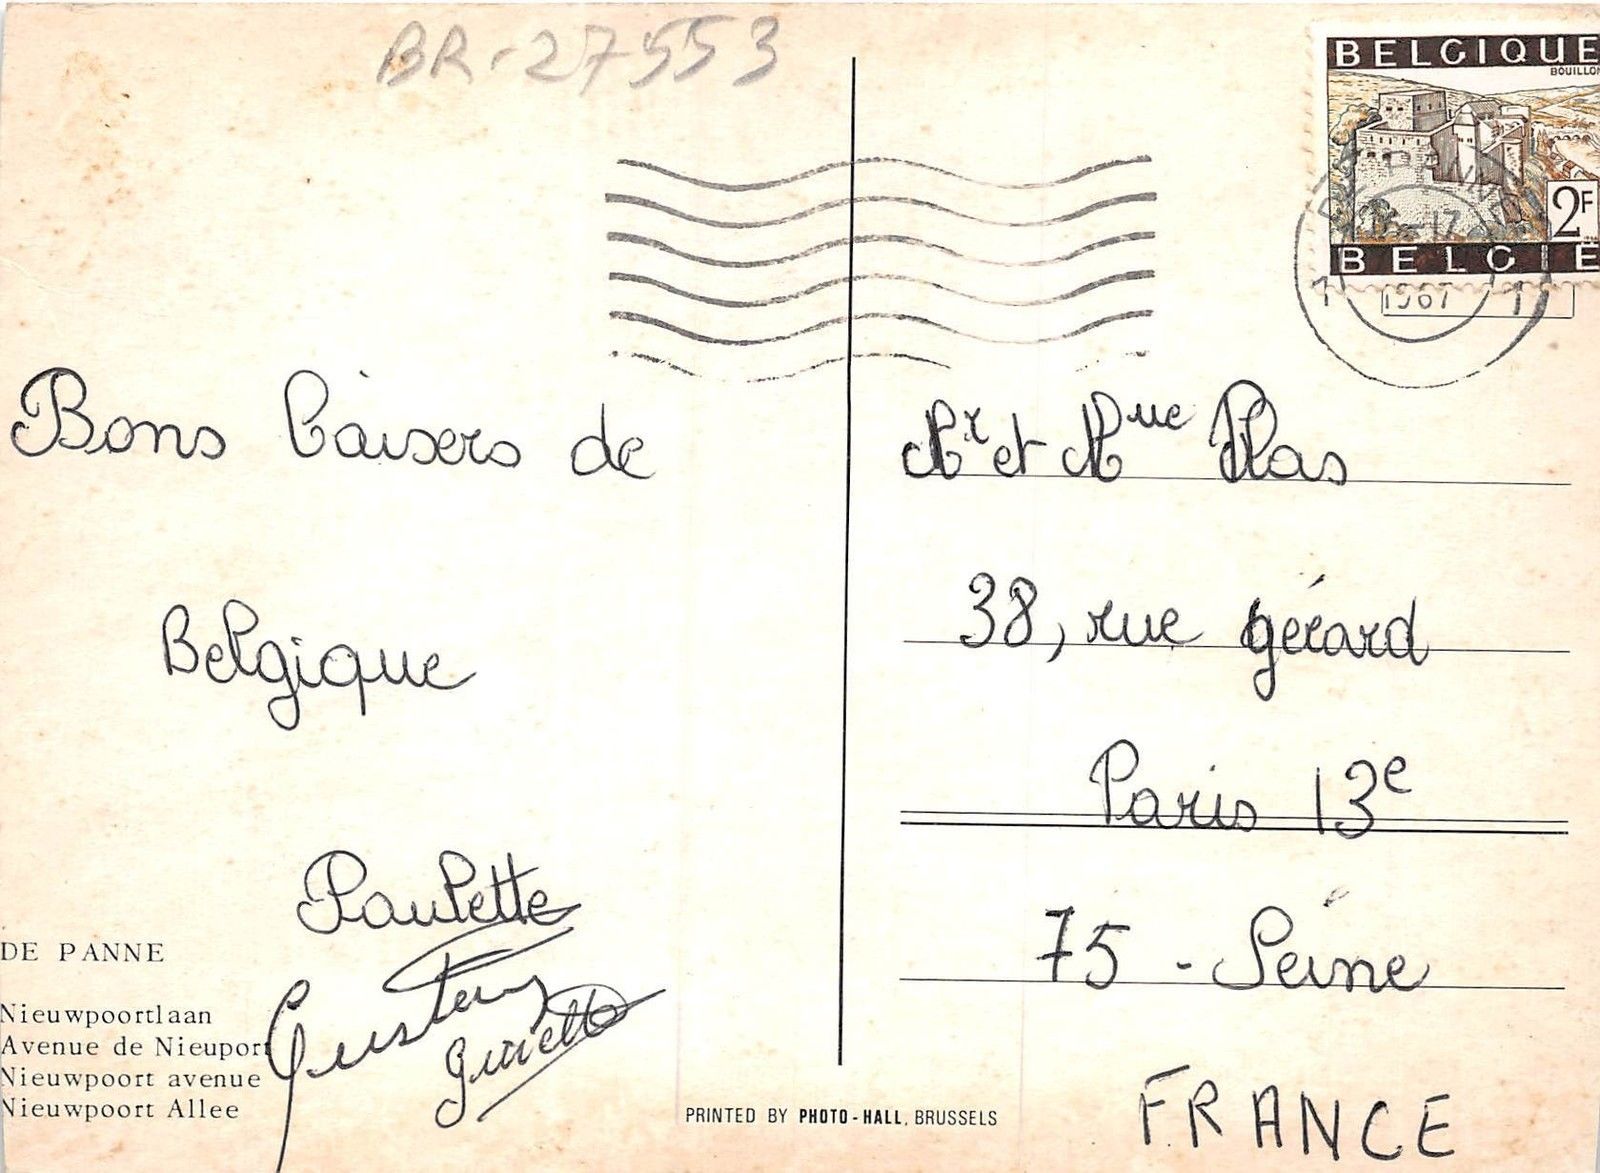 BR-27553
BELGIQUE
BOUILLON
2F
BELGIE
DE PANNE
17
1967
1 1
Bons baisers de
Belgique
Paulette
DE PANNE
Nieuwpoortlaan
Avenue de Nieuport
Nieuwpoort avenue
Nieuwpoort Allee
PRINTED BY PHOTO-HALL, BRUSSELS
Mr et Mme Plas
38, rue gérard
Paris 13e
75 - Seine
FRANCE